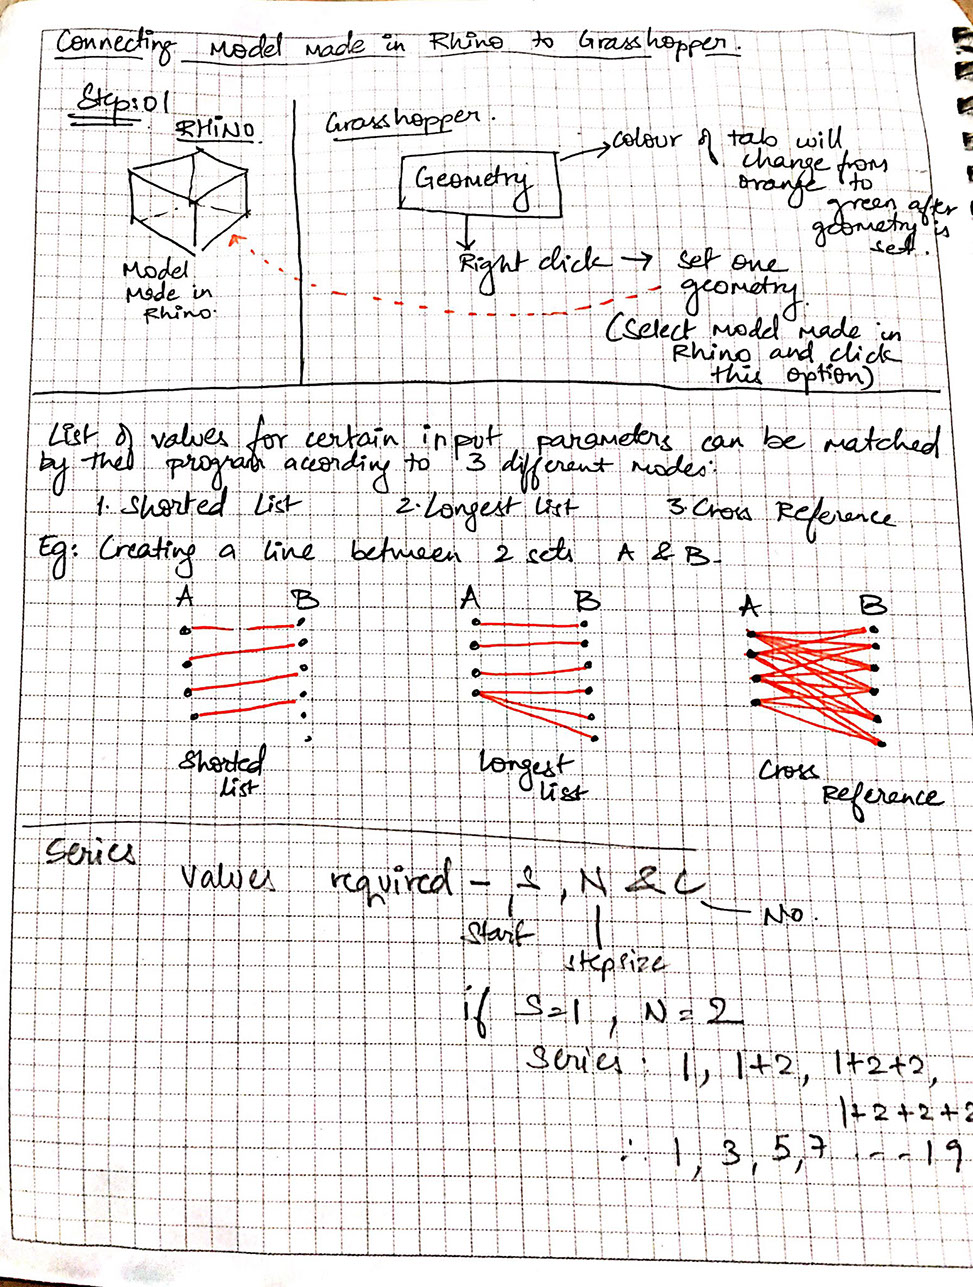 Connecting Model Made in Rhino to Grasshopper.
Step:01
RHINO
Model
Made in
Rhino.
Grasshopper.
Geometry
colour of tab will
change from
orange to
green after
geometry is
set.
Right click → set one
geometry.
(Select model made in
Rhino and click
this option)
List of values for certain input parameters can be matched
by the program acording to 3 different modes:
1. Shorted List 2. Longest list 3. Cross Reference
Eg: Creating a line between 2 sets A & B.
A B A B A B
Shorted
List
Longest
list
Cross
Reference
Series
Values required – S, N & C
No.
Start
stepsize
if S=1, N=2
Series: 1, 1+2, 1+2+2,
1+2+2+2
∴ 1, 3, 5, 7 ---19